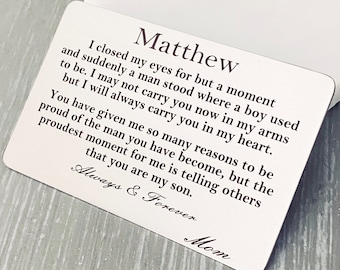 Matthew
I closed my eyes for but a moment
and suddenly a man stood where a boy used
to be. I may not carry you now in my arms
but I will always carry you in my heart.
You have given me so many reasons to be
proud of the man you have become, but the
proudest moment for me is telling others
that you are my son.
Always & Forever
Mom